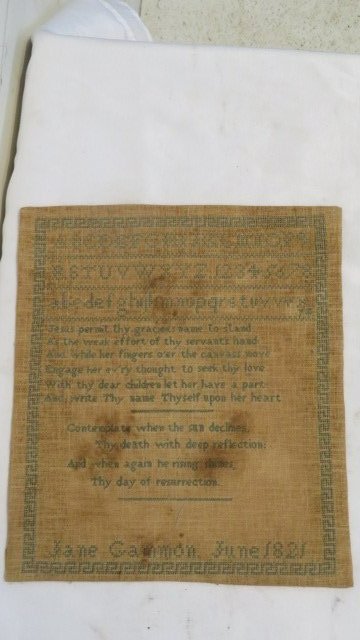 ABCDEFGHIJKLMNOPQ
RSTUVWXYZ 1234567
abcdefghijklmnopqrstuvwxyz
Jesus permit thy gracious name to stand
As the weak effort of thy servants hand
And while her fingers o'er the canvass move
Engage her ev'ry thought to seek thy love
With thy dear children let her have a part
And write Thy name Thyself upon her heart
Contemplate when the sun declines,
Thy death with deep reflection;
And when again he rising shines,
Thy day of resurrection.
Jane Gammon, June 1821